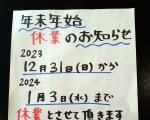 年末年始
休業のお知らせ
2023
12月31日(日)から
2024
1月3日(水)まで
休業とさせて頂きます